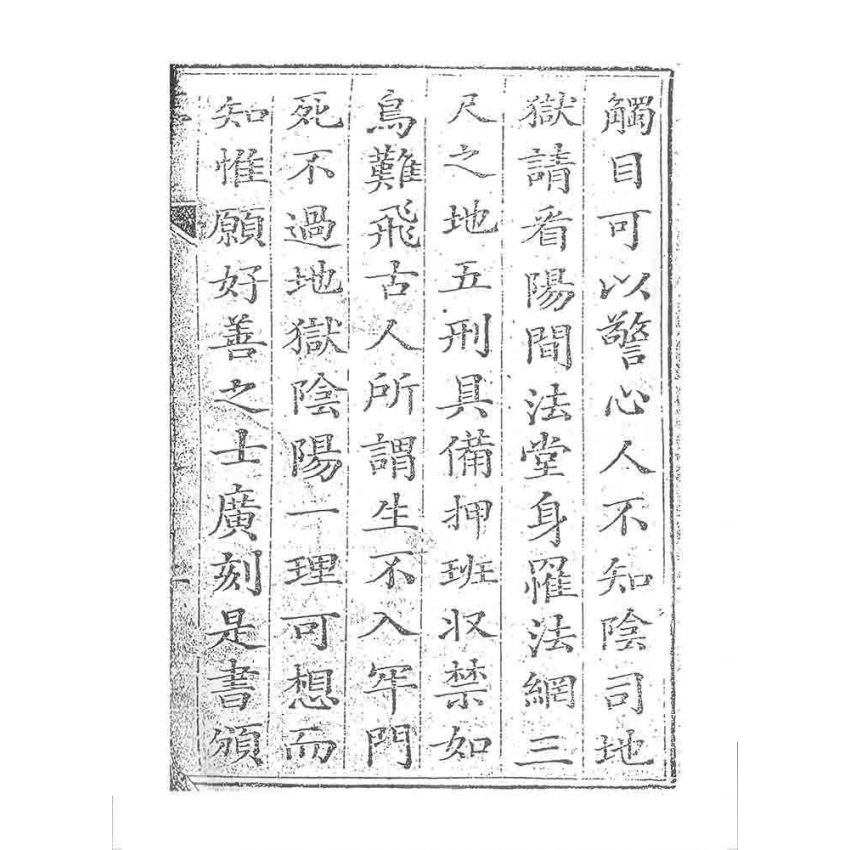 觸目可以警心人不知陰司地
獄請看陽間法堂身罹法網三
尺之地五刑具備押班収禁如
鳥難飛古人所謂生不入牢門
死不過地獄陰陽一理可想而
知惟願好善之士廣刻是書頒